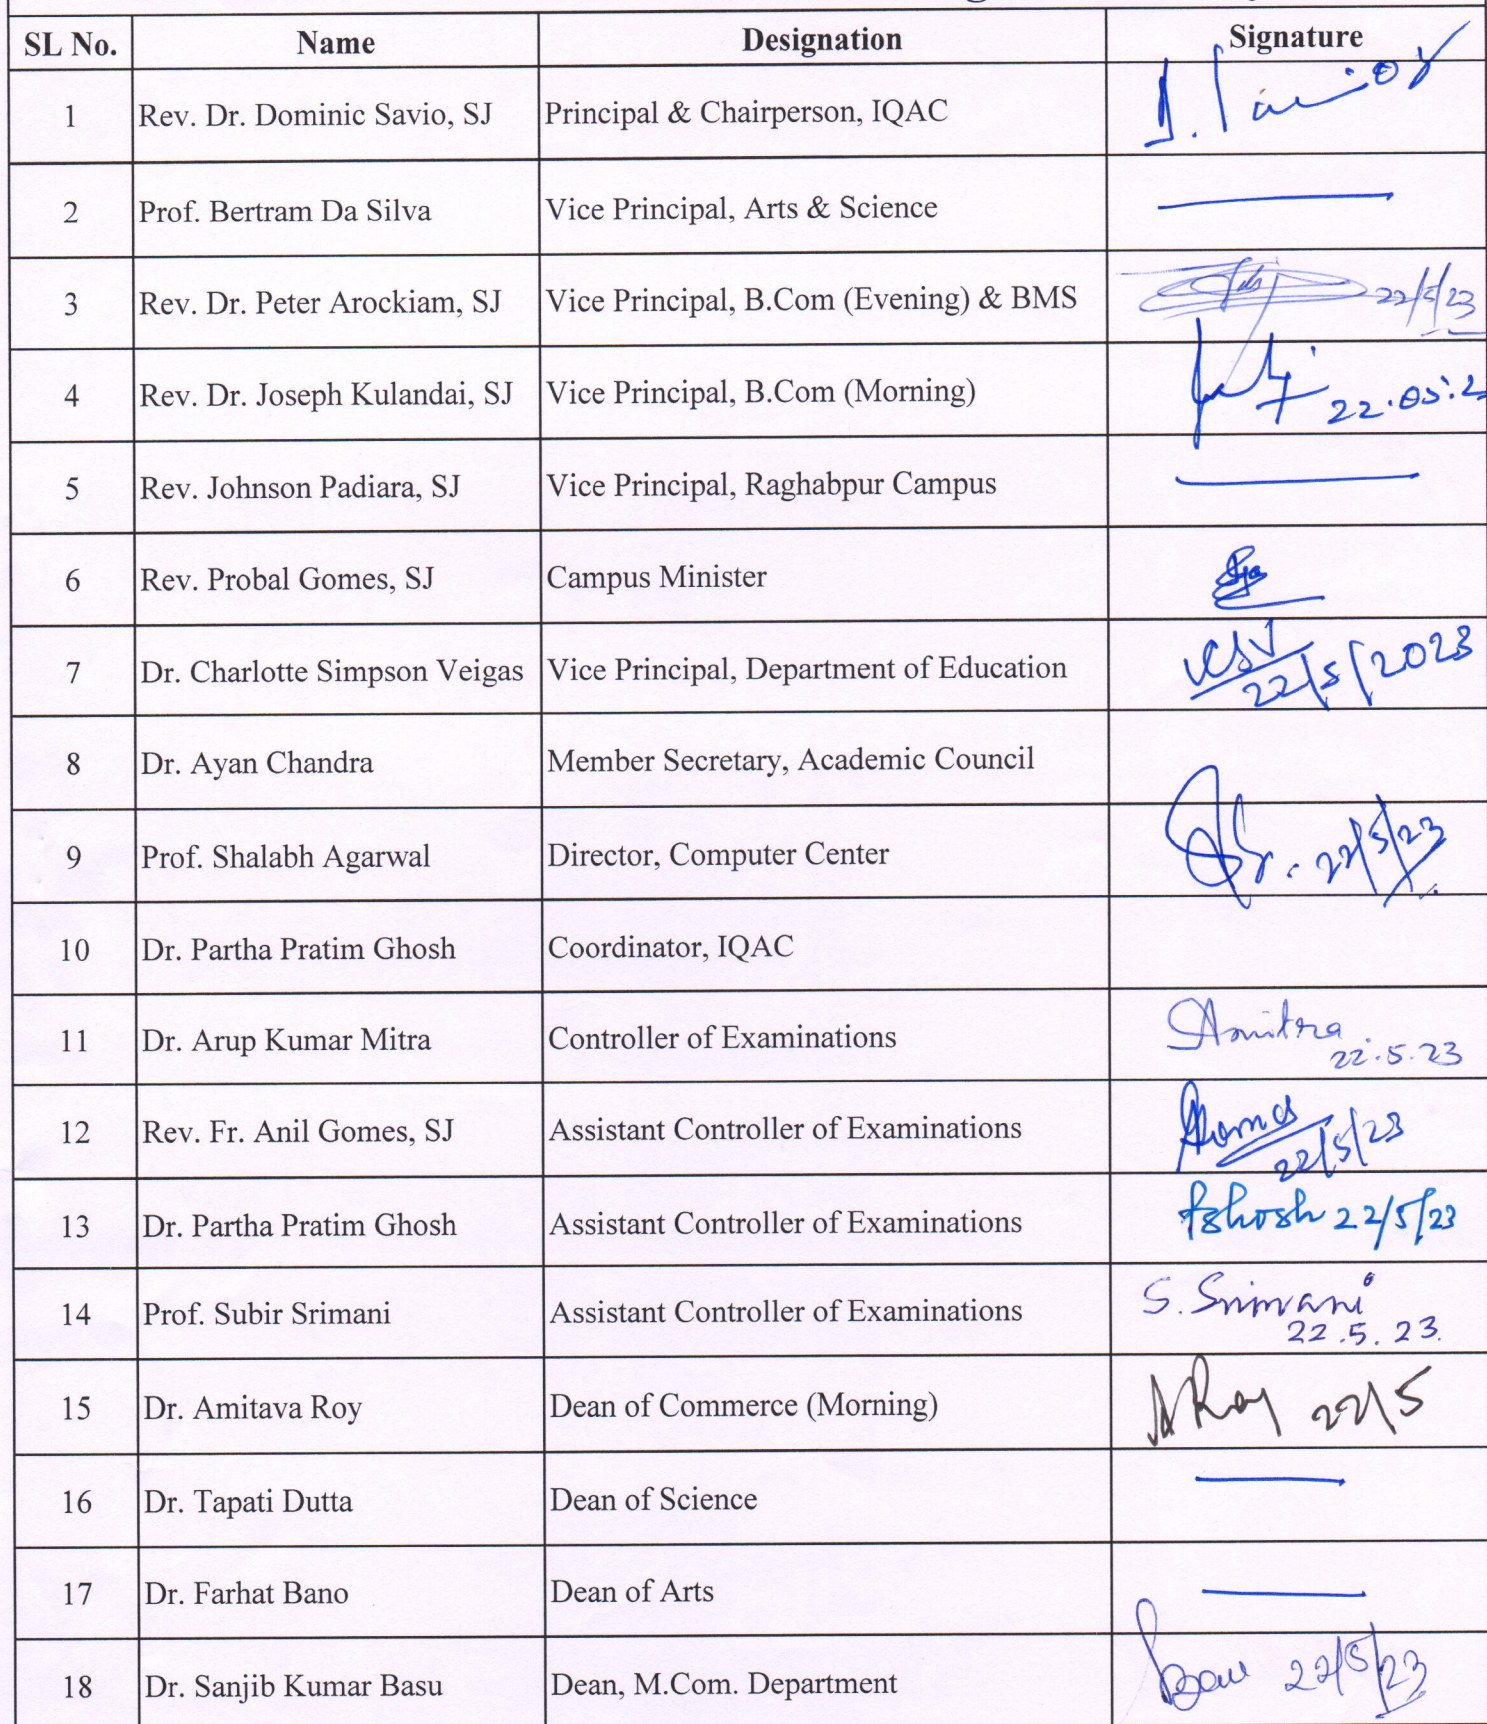 SL No. Name Designation Signature
1 Rev. Dr. Dominic Savio, SJ Principal & Chairperson, IQAC
2 Prof. Bertram Da Silva Vice Principal, Arts & Science
3 Rev. Dr. Peter Arockiam, SJ Vice Principal, B.Com (Evening) & BMS 22/5/23
4 Rev. Dr. Joseph Kulandai, SJ Vice Principal, B.Com (Morning) 22.05.2
5 Rev. Johnson Padiara, SJ Vice Principal, Raghabpur Campus
6 Rev. Probal Gomes, SJ Campus Minister
7 Dr. Charlotte Simpson Veigas Vice Principal, Department of Education 22/5/2023
8 Dr. Ayan Chandra Member Secretary, Academic Council
9 Prof. Shalabh Agarwal Director, Computer Center 22/5/23
10 Dr. Partha Pratim Ghosh Coordinator, IQAC
11 Dr. Arup Kumar Mitra Controller of Examinations AKmitra
22.5.23
12 Rev. Fr. Anil Gomes, SJ Assistant Controller of Examinations AGomes
22/5/23
13 Dr. Partha Pratim Ghosh Assistant Controller of Examinations PGhosh 22/5/23
14 Prof. Subir Srimani Assistant Controller of Examinations S. Srimani
22.5.23.
15 Dr. Amitava Roy Dean of Commerce (Morning) A Roy 22/5
16 Dr. Tapati Dutta Dean of Science
17 Dr. Farhat Bano Dean of Arts
18 Dr. Sanjib Kumar Basu Dean, M.Com. Department 22/5/23